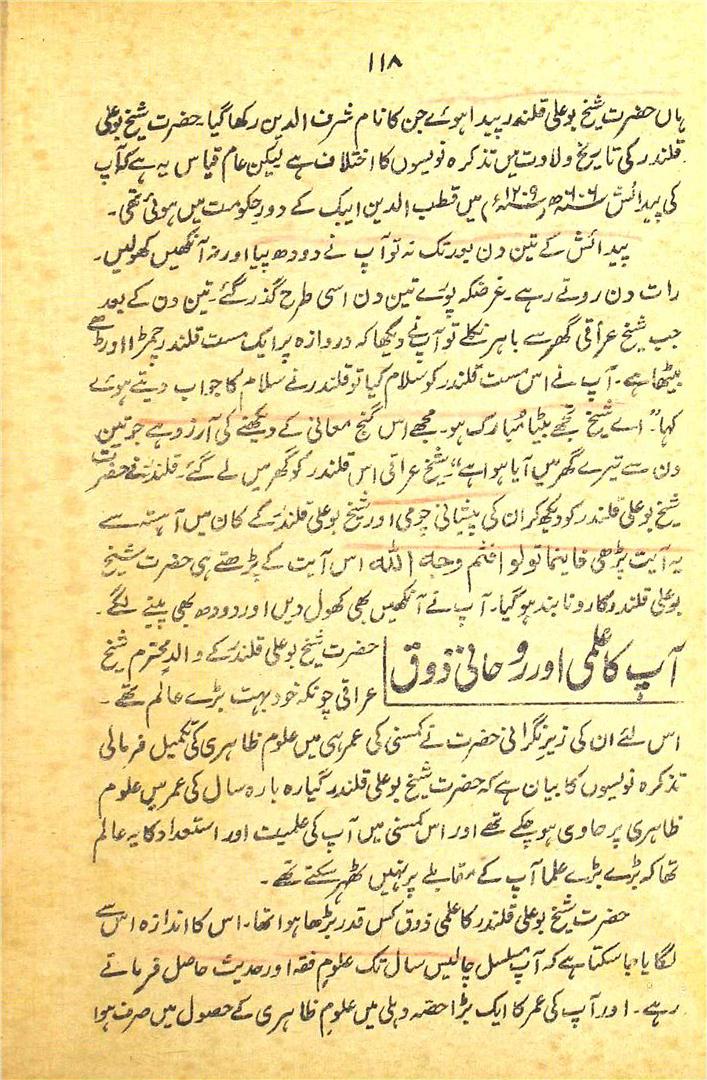 ۱۱۸
ہاں حضرت شیخ بو علی قلندر پیدا ہوئے جن کا نام شرف الدین رکھا گیا۔ حضرت شیخ بو علی
قلندر کی تاریخ ولاوت میں تذکرہ نویسوں کا اختلاف ہے لیکن عام قیاس یہ ہے کہ آپ
کی پیدائش ۶۰۶ھ (۱۲۰۹ء) میں قطب الدین ایبک کے دورِ حکومت میں ہوئی تھی۔
پیدائش کے تین دن بعد تک نہ تو آپ نے دودھ پیا اور نہ آنکھیں کھولیں۔
رات دن روتے رہے۔ غرضکہ پورے تین دن اسی طرح گذر گئے۔ تین دن کے بعد
جب شیخ عراقی گھر سے باہر نکلے تو آپ نے دیکھا کہ دروازہ پر ایک مست قلندر چمڑا اوڑھے
بیٹھا ہے۔ آپ نے اس مست قلندر کو سلام کیا تو قلندر نے سلام کا جواب دیتے ہوئے
کہا "اے شیخ تجھے بیٹا مبارک ہو۔ مجھے اس گنج معانی کے دیکھنے کی آرزو ہے جو تین
دن سے تیرے گھر میں آیا ہوا ہے"۔ شیخ عراقی اس قلندر کو گھر میں لے گئے۔ قلندر نے حضرت
شیخ بو علی قلندر کو دیکھ کر ان کی پیشانی چومی اور شیخ بو علی قلندر کے کان میں آہستہ سے
یہ آیت پڑھی فاینما تولوا فثم وجہ اللہ اس آیت کے پڑھتے ہی حضرت شیخ
بو علی قلندر کا رونا بند ہو گیا۔ آپ نے آنکھیں بھی کھول دیں اور دودھ بھی پینے لگے۔
آپ کا علمی اور روحانی ذوق
حضرت شیخ بو علی قلندر کے والدِ محترم شیخ
عراقی چونکہ خود بہت بڑے عالم تھے۔
اس لئے ان کی زیرِ نگرانی حضرت نے کمسنی کی عمر ہی میں علوم ظاہری کی تکمیل فرمالی
تذکرہ نویسوں کا بیان ہے کہ حضرت شیخ بو علی قلندر گیارہ بارہ سال کی عمر میں علوم
ظاہری پر حاوی ہو چکے تھے اور اس کمسنی میں آپ کی علمیت اور استعداد کا یہ عالم
تھا کہ بڑے بڑے علما آپ کے مقابلے پر نہیں ٹھہر سکتے تھے۔
حضرت شیخ بو علی قلندر کا علمی ذوق کس قدر بڑھا ہوا تھا۔ اس کا اندازہ اس سے
لگایا جا سکتا ہے کہ آپ مسلسل چالیس سال تک علومِ فقہ اور حدیث حاصل فرماتے
رہے۔ اور آپ کی عمر کا ایک بڑا حصہ دہلی میں علومِ ظاہری کے حصول میں صرف ہوا